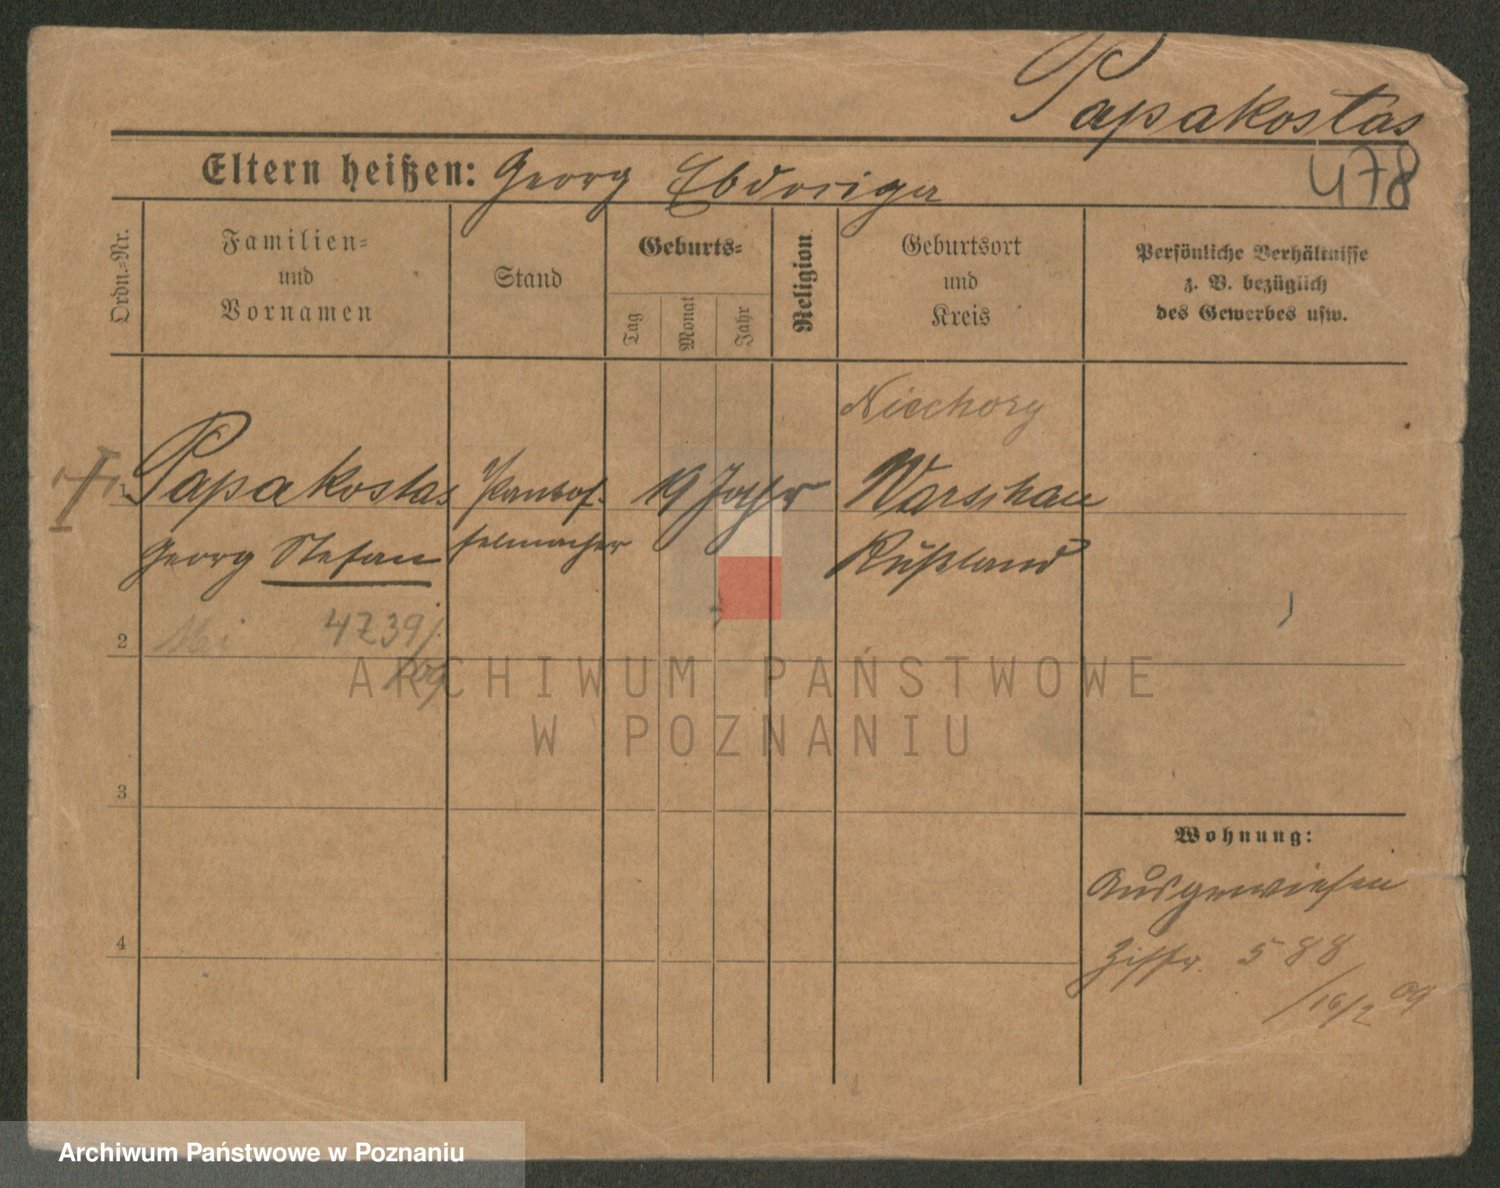 Papakostas
478
Eltern heißen: Georg
Ordn.-Nr.
Familien-
und
Vornamen
Stand
Geburts-
Tag
Monat
Jahr
Religion
Geburtsort
und
Kreis
Persönliche Verhältnisse
z. B. bezüglich
des Gewerbes usw.
1 Papakostas Pantof- 19 Jahr Warschau
Georg Stefan felmacher Rußland
2
4739/.
09
3
4
Wohnung:
Ausgewiesen
Ziffr. 588
/16/2 09
ARCHIWUM PAŃSTWOWE
W POZNANIU
Archiwum Państwowe w Poznaniu